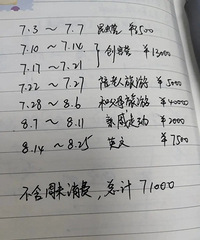 7.3 ~ 7.7 民宿营 ¥1500
7.10 ~ 7.14
7.17 ~ 7.21 } 创客营 ¥13000
7.22 ~ 7.27 陪老人旅游 ¥5000
7.28 ~ 8.6 和父母旅游 ¥40000
8.7 ~ 8.11 亲戚走动 ¥2000
8.14 ~ 8.25 英文 ¥7500
不含周末消费，总计 71000